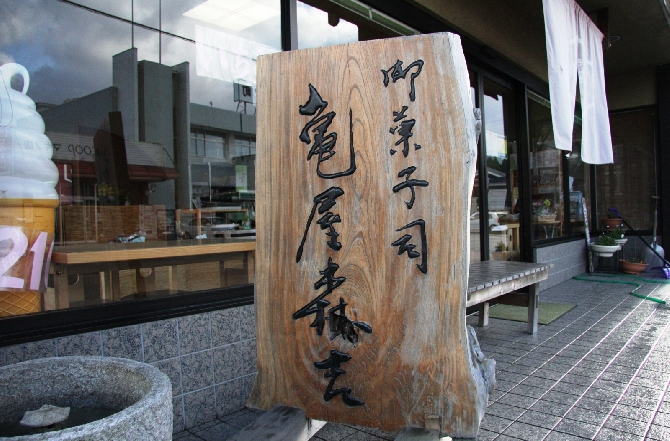 御菓子司
亀屋森吉
21